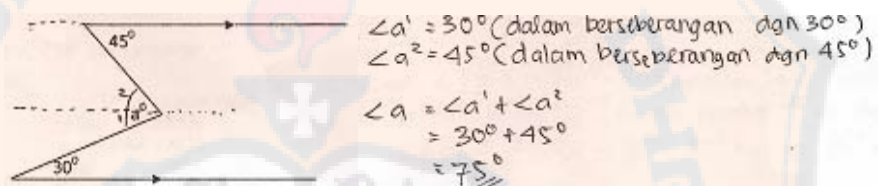 45°
2
1 a°
30°
∠a¹ = 30° (dalam berseberangan dgn 30°)
∠a² = 45° (dalam berseberangan dgn 45°)
∠a = ∠a¹ + ∠a²
= 30° + 45°
= 75°